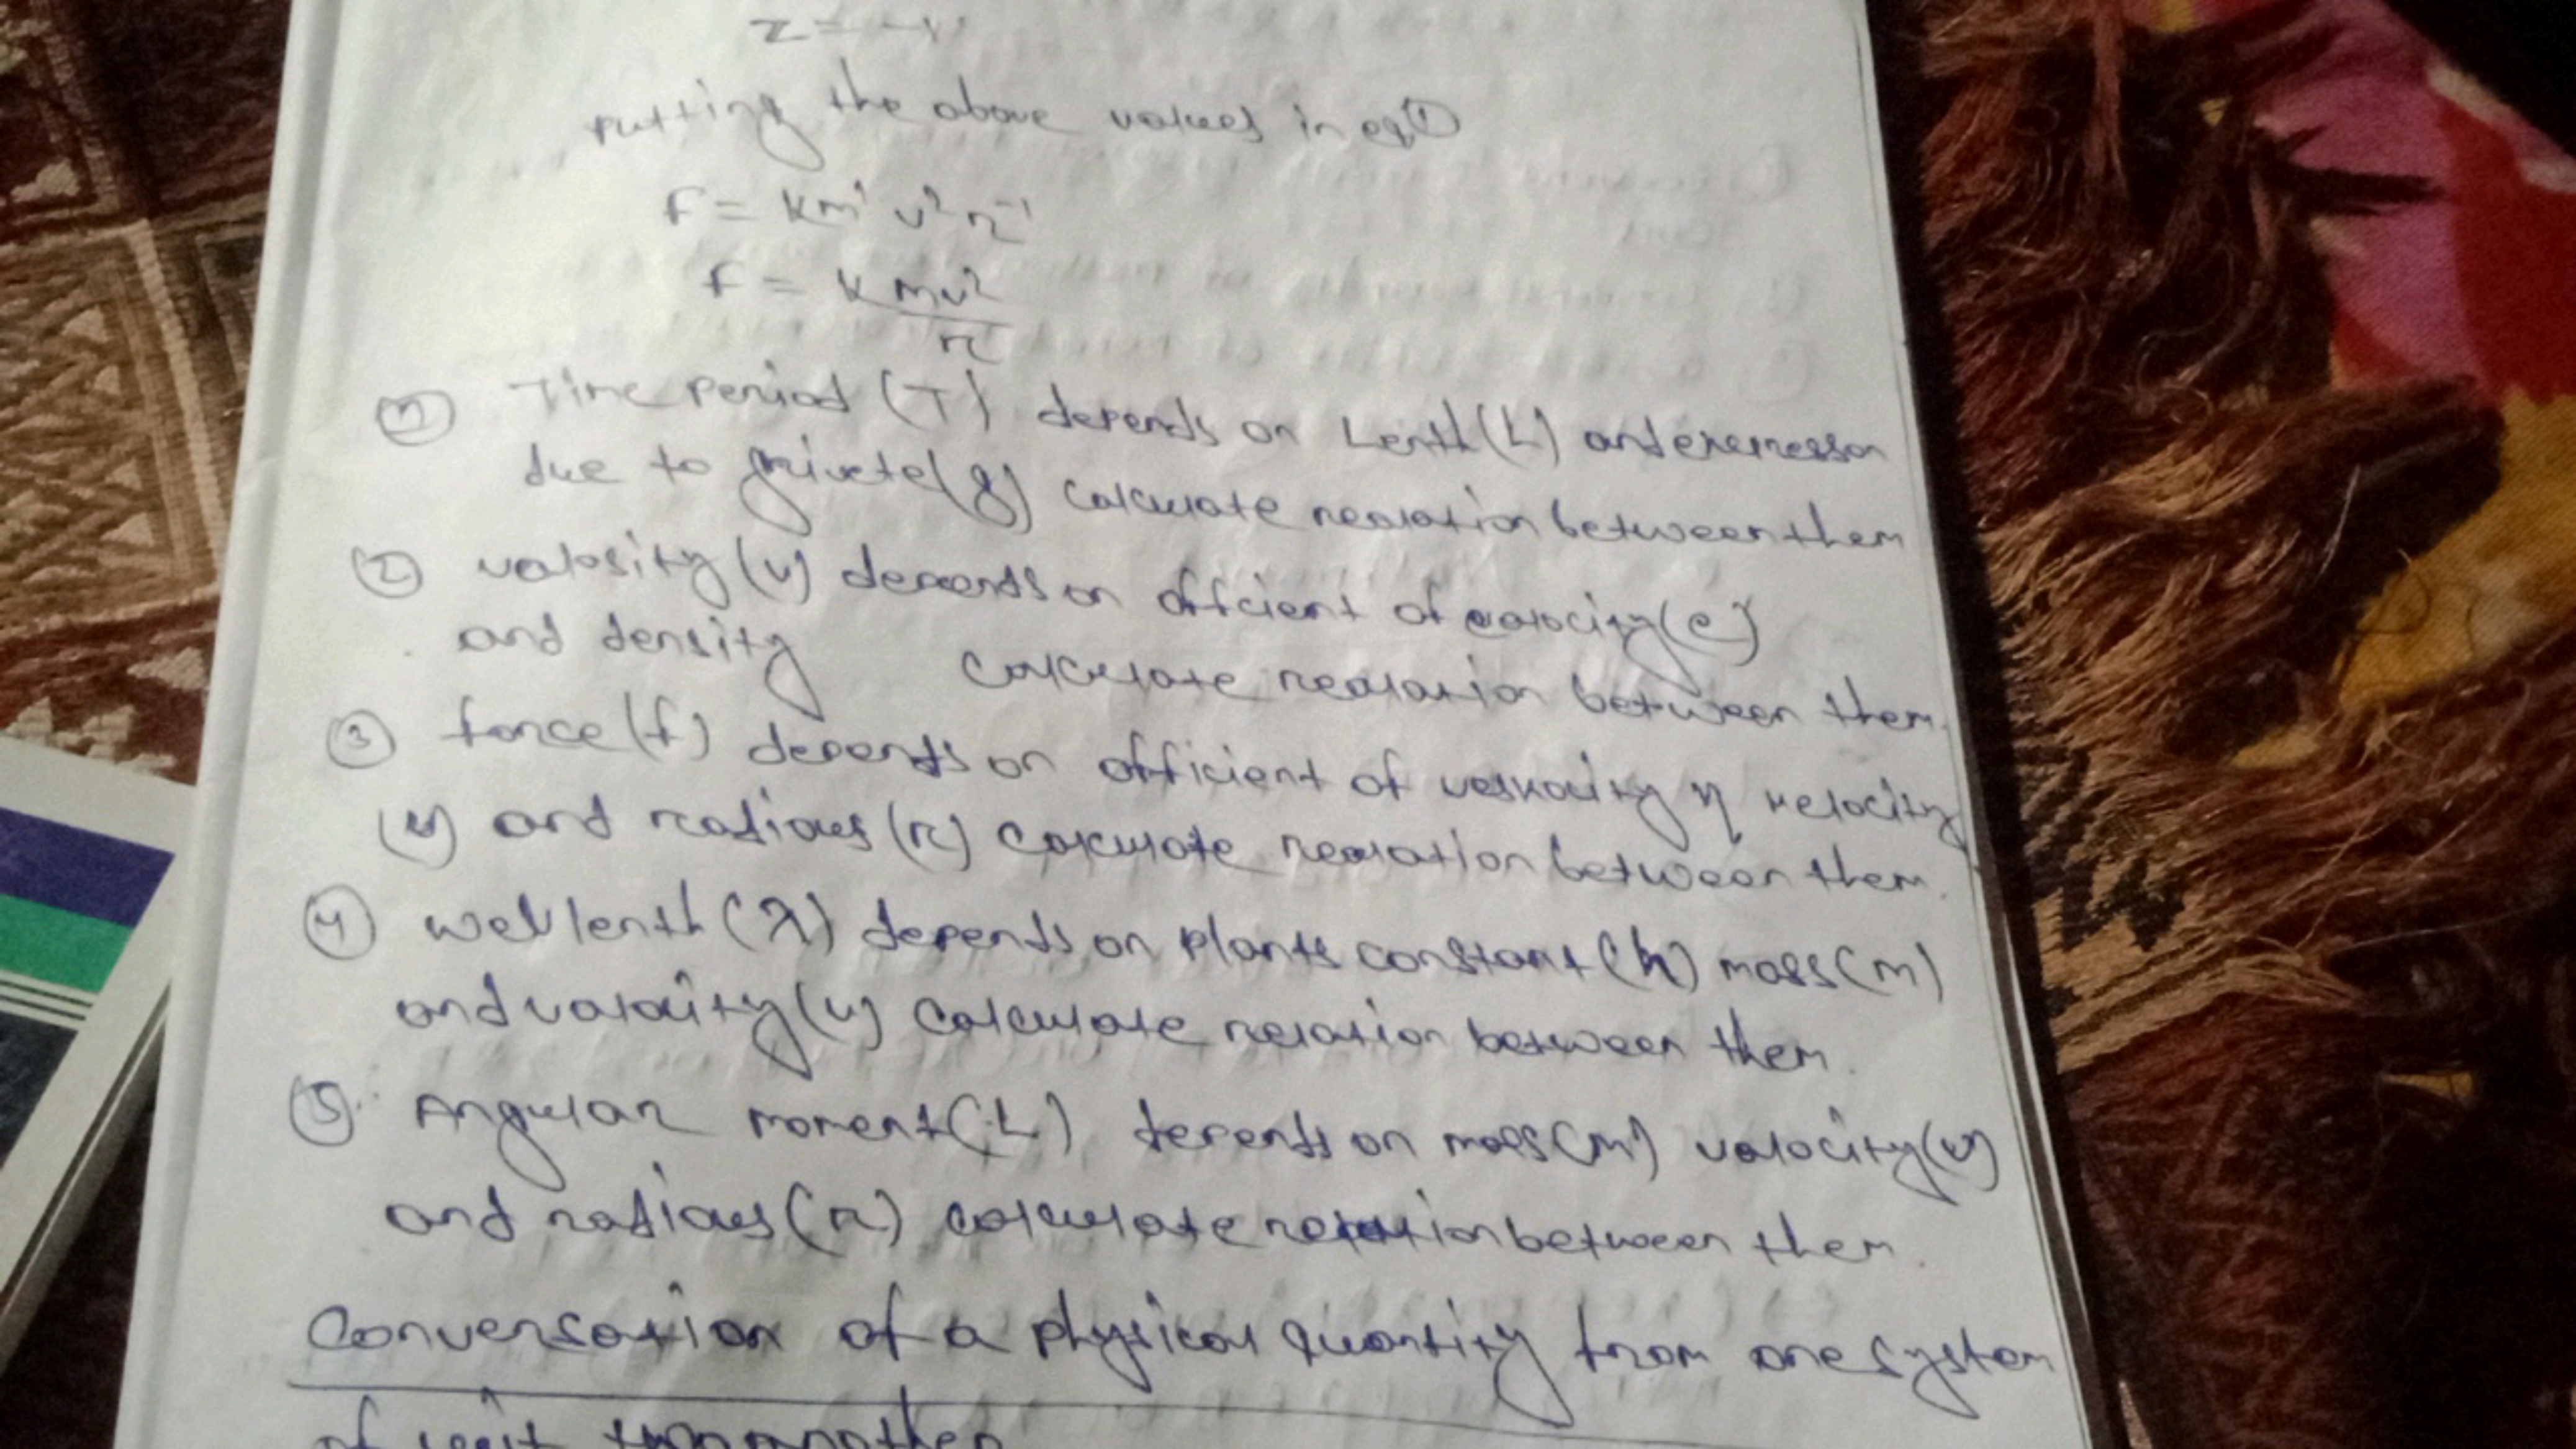 z = -1
putting the above values in eq①
F = km¹ v² r⁻¹
f = k mv²
r
① Time period (T) depends on Lenth (L) and
due to calculate realation between them
② valosity (v) depends on officient of (e)
and density calculate realation between them.
③ force (f) depends on officient of η velocity
(v) and radious (r) calculate realation between them.
④ wevlenth (λ) depends on plants constant (h) mass (m)
and valocity (v) calculate relation between them.
⑤ Angular moment (L) depends on mass (m) valocity (v)
and radious (r) calculate relation between them.
Conversation of a physical quantity from one system
of unit